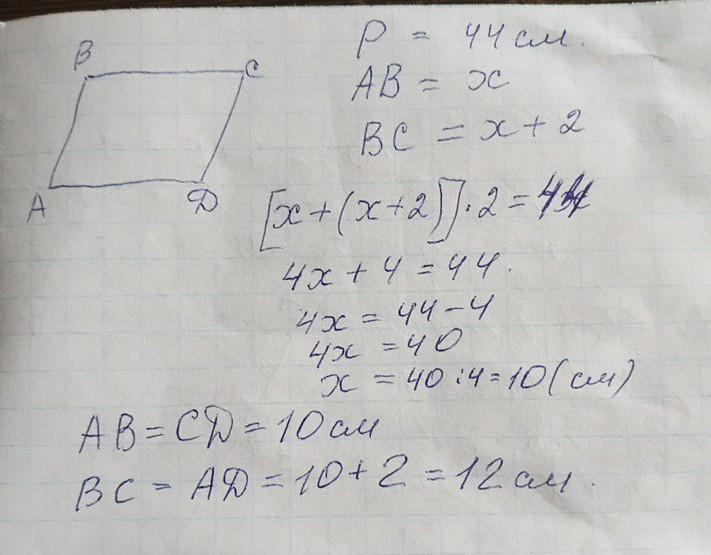 B
C
A
D
P = 44 см.
AB = x
BC = x + 2
[x + (x + 2)] · 2 = 44
4x + 4 = 44.
4x = 44 - 4
4x = 40
x = 40 : 4 = 10 (см)
AB = CD = 10 см
BC = AD = 10 + 2 = 12 см.